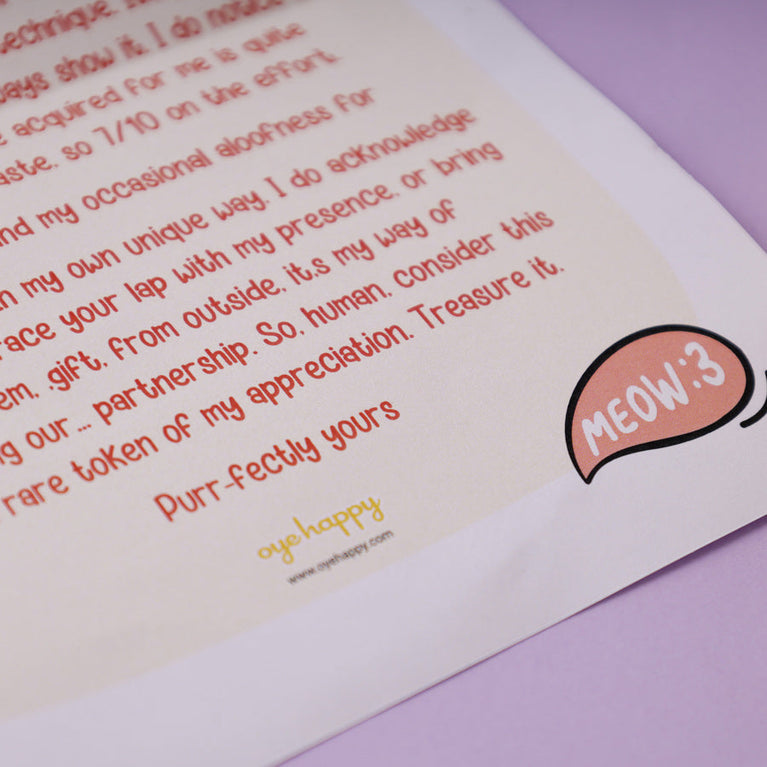 technique.
ways show it, I do notice
acquired for me is quite
taste, so 7/10 on the effort.
and my occasional aloofness for
in my own unique way. I do acknowledge
race your lap with my presence, or bring
em, .gift, from outside, it,s my way of
ng our ... partnership. So, human, consider this
rare token of my appreciation. Treasure it.
Purr-fectly yours
oye happy
www.oyehappy.com
MEOW:3